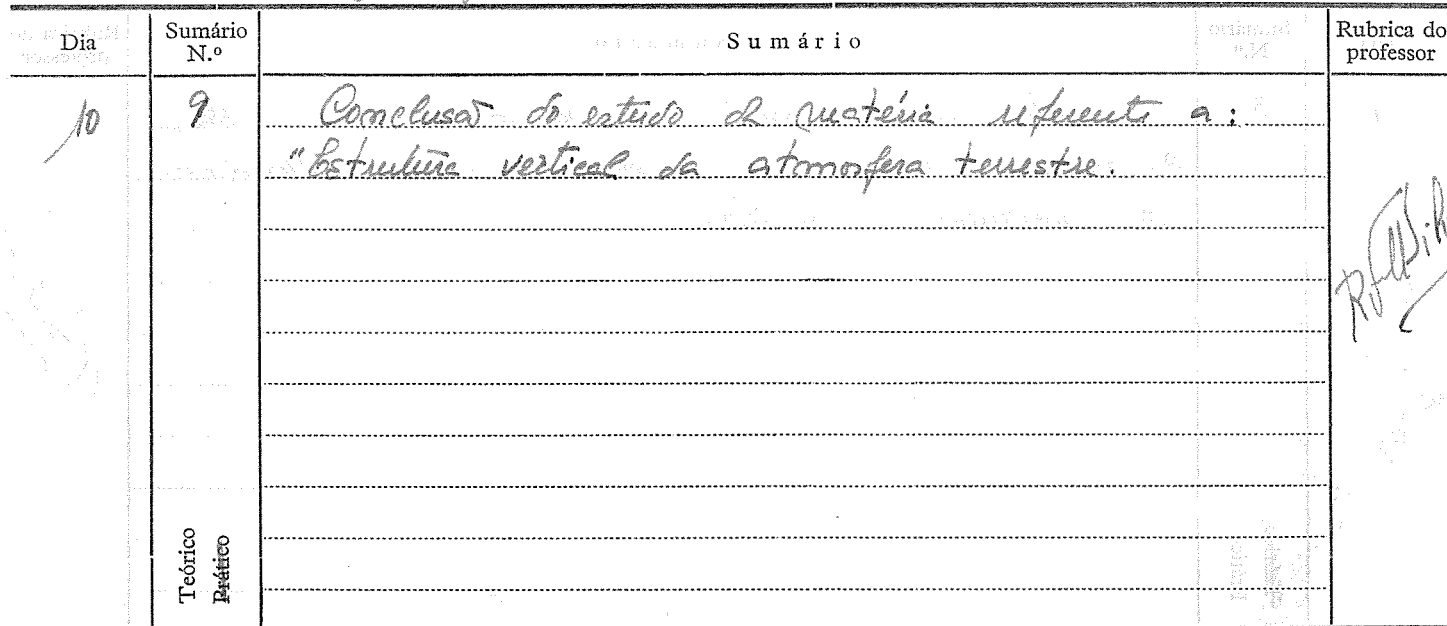 Dia
Sumário N.º
Sumário
Rubrica do professor
10
9
Conclusão do estudo da matéria referente a:
"Estrutura vertical da atmosfera terrestre.
Teórico
Prático